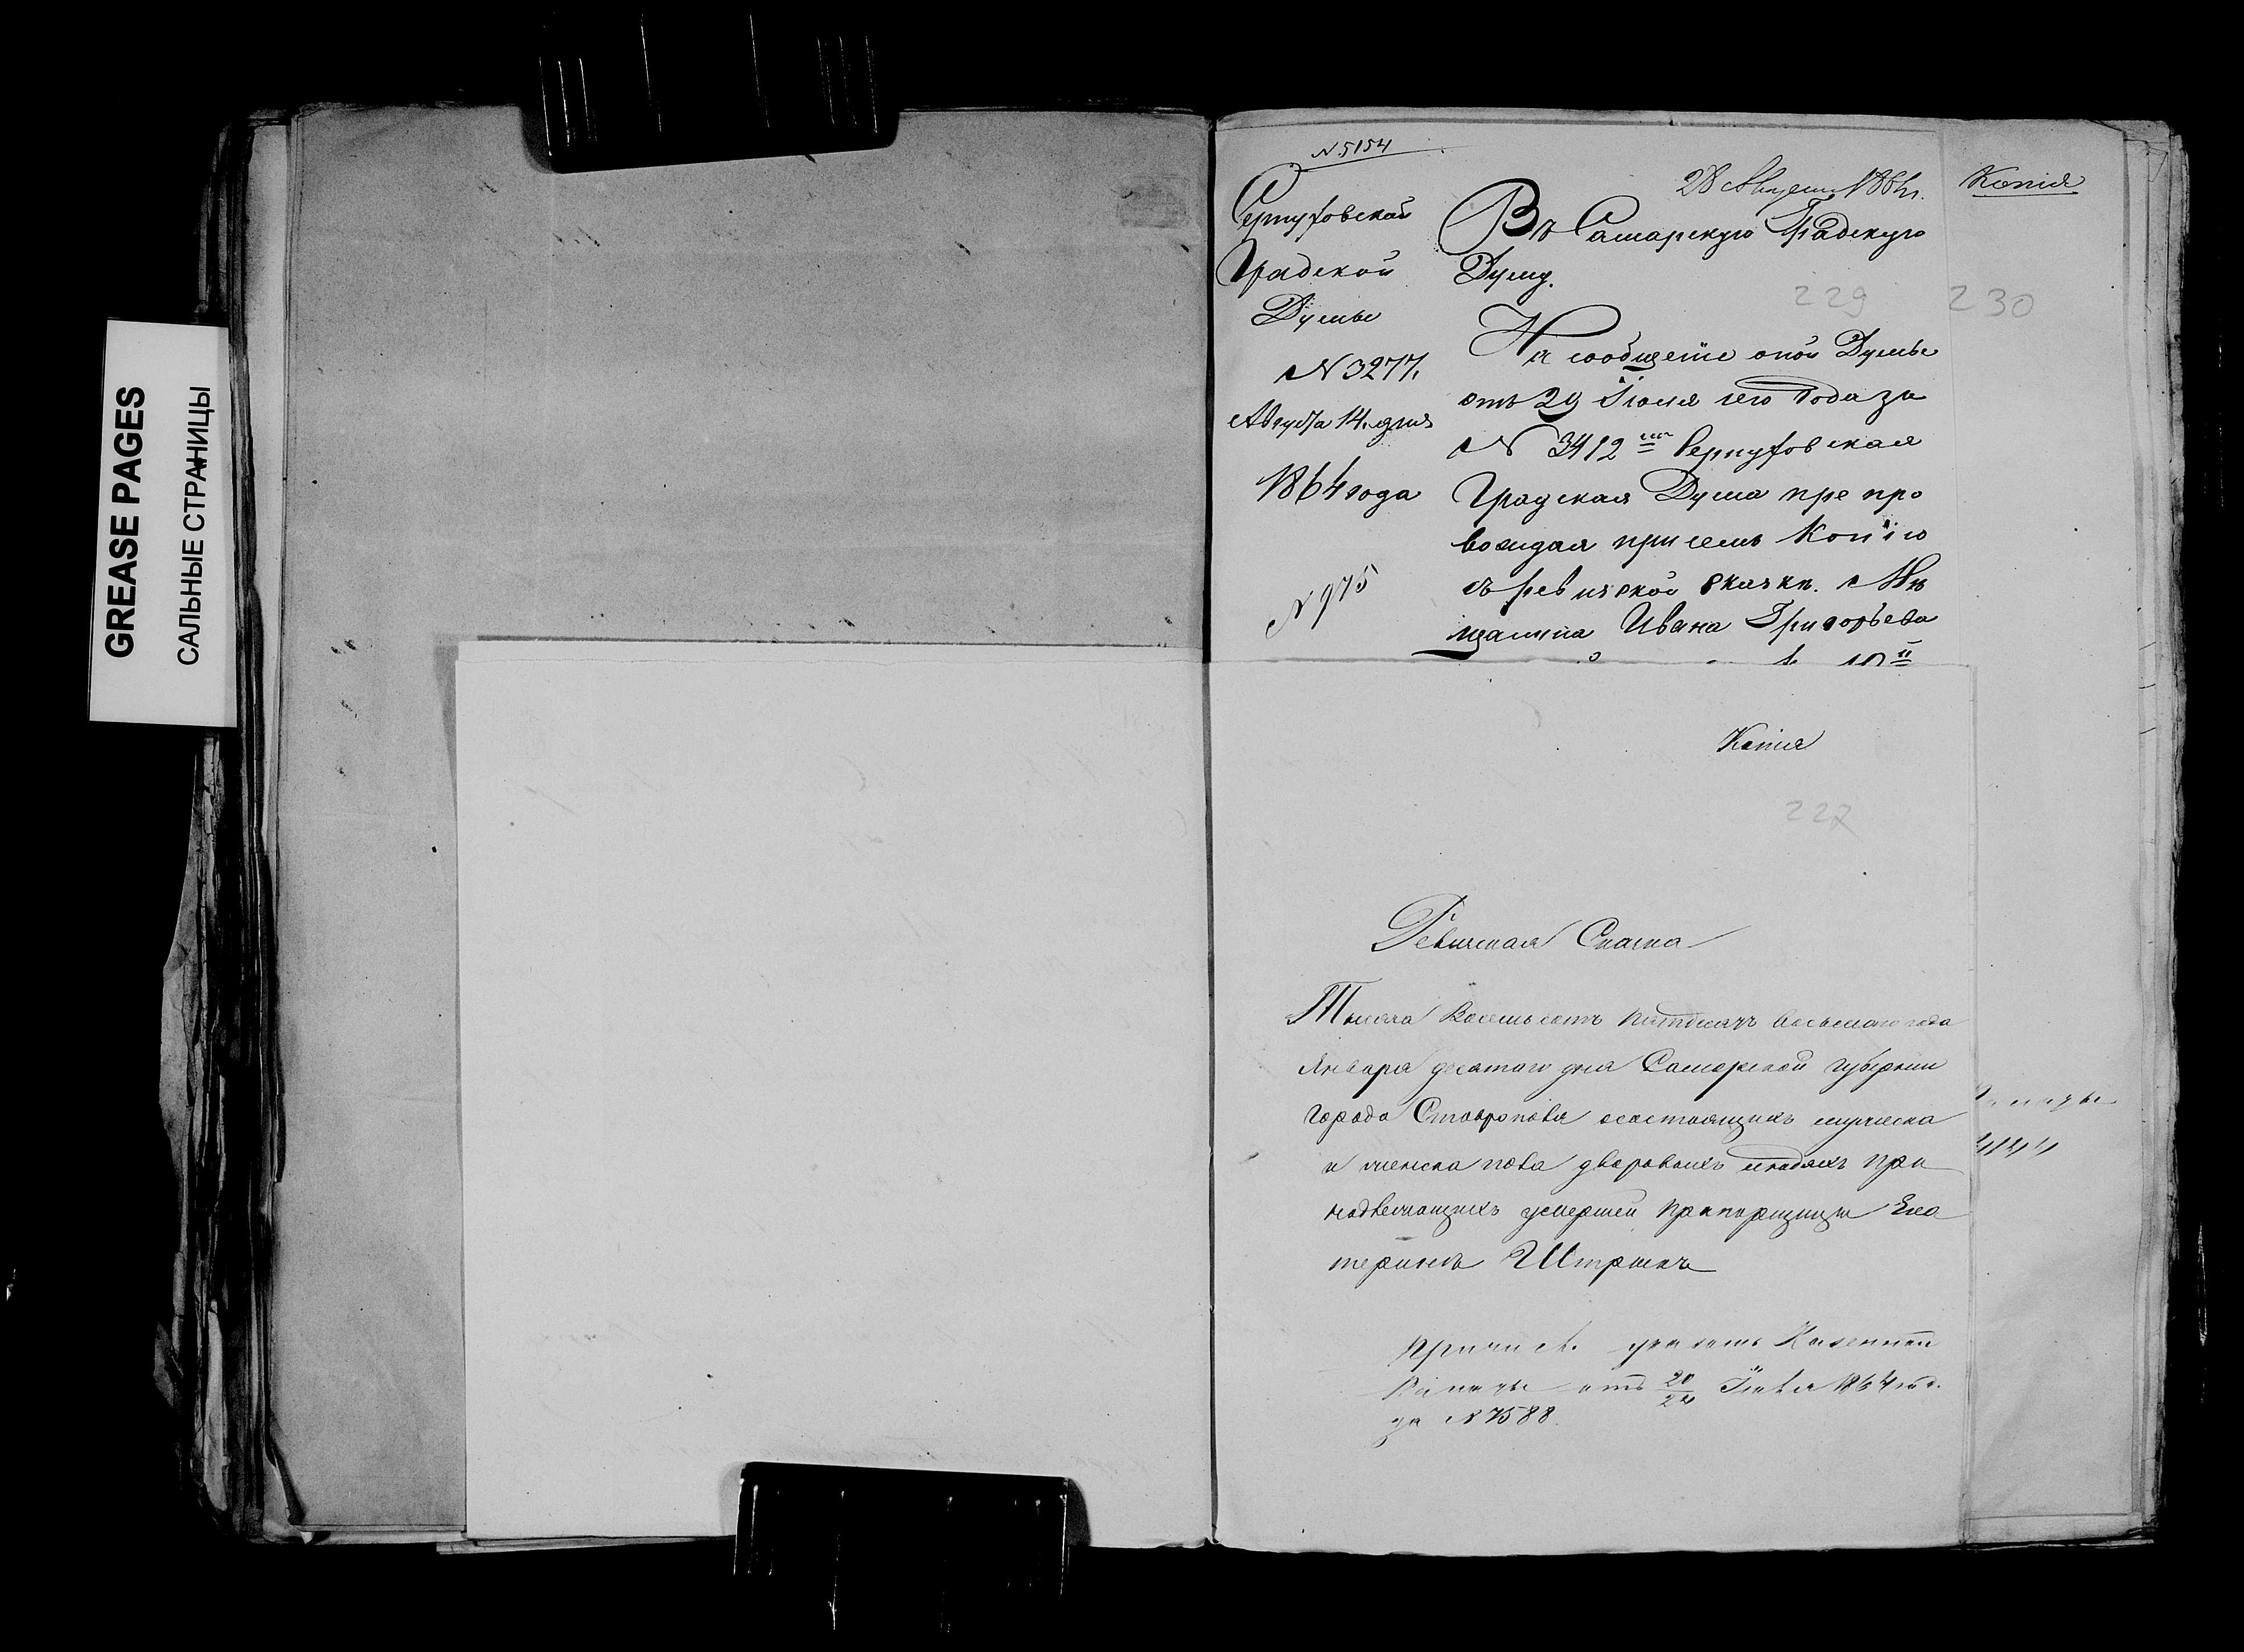 GREASE PAGES
САЛЬНЫЕ СТРАНИЦЫ
N 5154
Серпуховской
Градской
Думы
N 3277.
Августа 14. дня
1864 года
N 975
28 Августа 1864 г.
Въ Самарскую Градскую
Думу.
229
На сообщеніе оной Думы
отъ 29 Іюля сего года за
N 3412 Серпуховская
Градская Дума пре про
вождая присемъ Копію
съ ревизской скаски. Мѣ
щанина Ивана Григорьева
Копія
230
Копія
227
Ревизская Скаска
Тысяча Восемьсотъ пятдесятъ восьмаго года
Января десятаго дня Самарской губерніи
города Ставрополя осостоящихъ мужеска
и женска пола дворовыхъ людяхъ при
надлежащихъ умершей прапорщицы Ека
терины
Причис. указомъ Казенной
Палаты отъ 20/22 1864 год.
за N 7588.